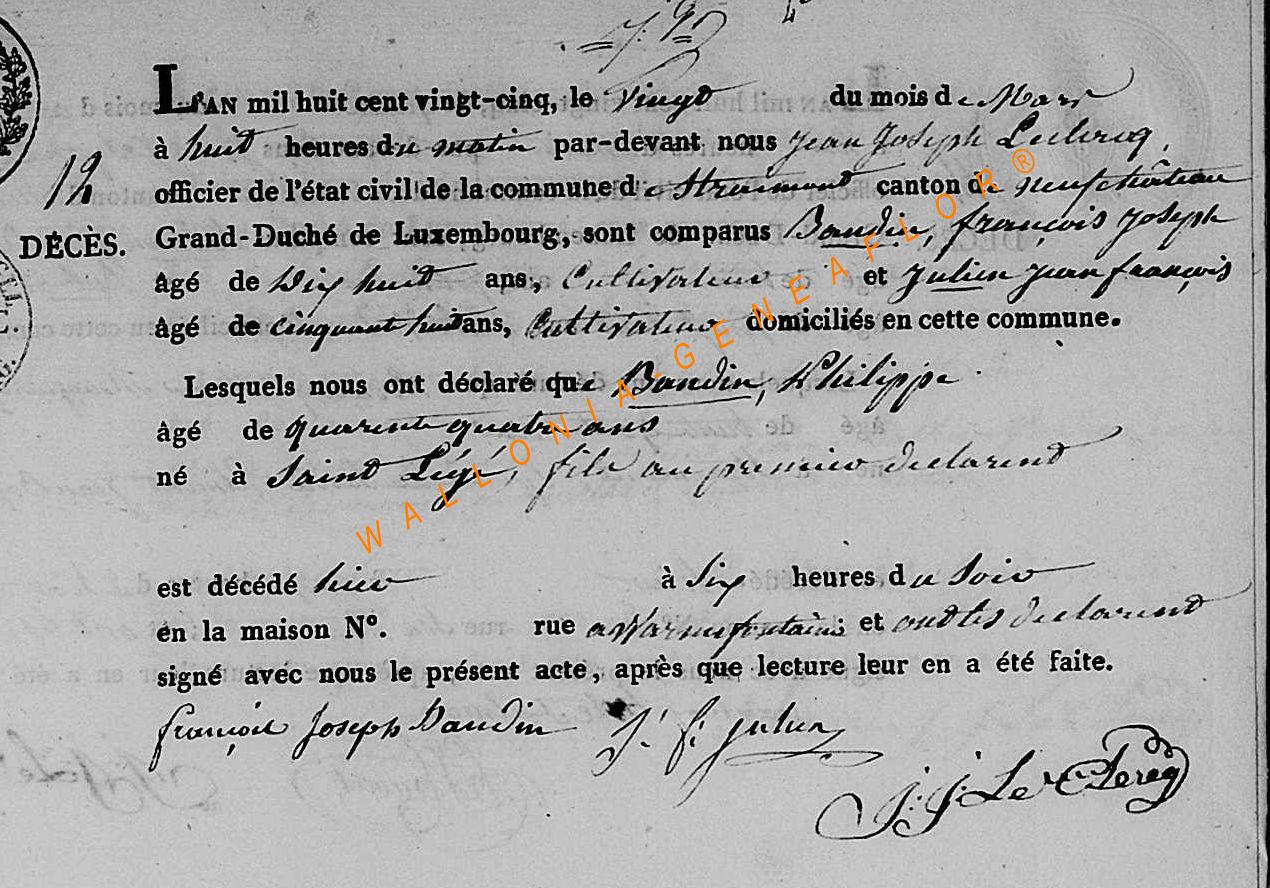 L'AN mil huit cent vingt-cinq, le Vingt du mois de Mars
à huit heures du matin par-devant nous Jean Joseph Leclercq,
12
officier de l'état civil de la commune de Straimont canton de neufchâteau
DÉCÈS.
Grand-Duché de Luxembourg, sont comparus Baudin, françois Joseph
âgé de Dix huit ans, Cultivateur et Julien Jean françois
âgé de cinquant huit ans, Cultivateur domiciliés en cette commune.
Lesquels nous ont déclaré que Baudin, Philippe
âgé de quarente quatre ans
né à Saint Légé, fils au premier declarent
est décédé hier à Six heures du Soir
en la maison N°. rue a Warmifontaine et ont les declarent
signé avec nous le présent acte, après que lecture leur en a été faite.
françois Joseph Baudin J. f. julien
J. J. Le Clercq
WALLONIA.GENEAFLOR®